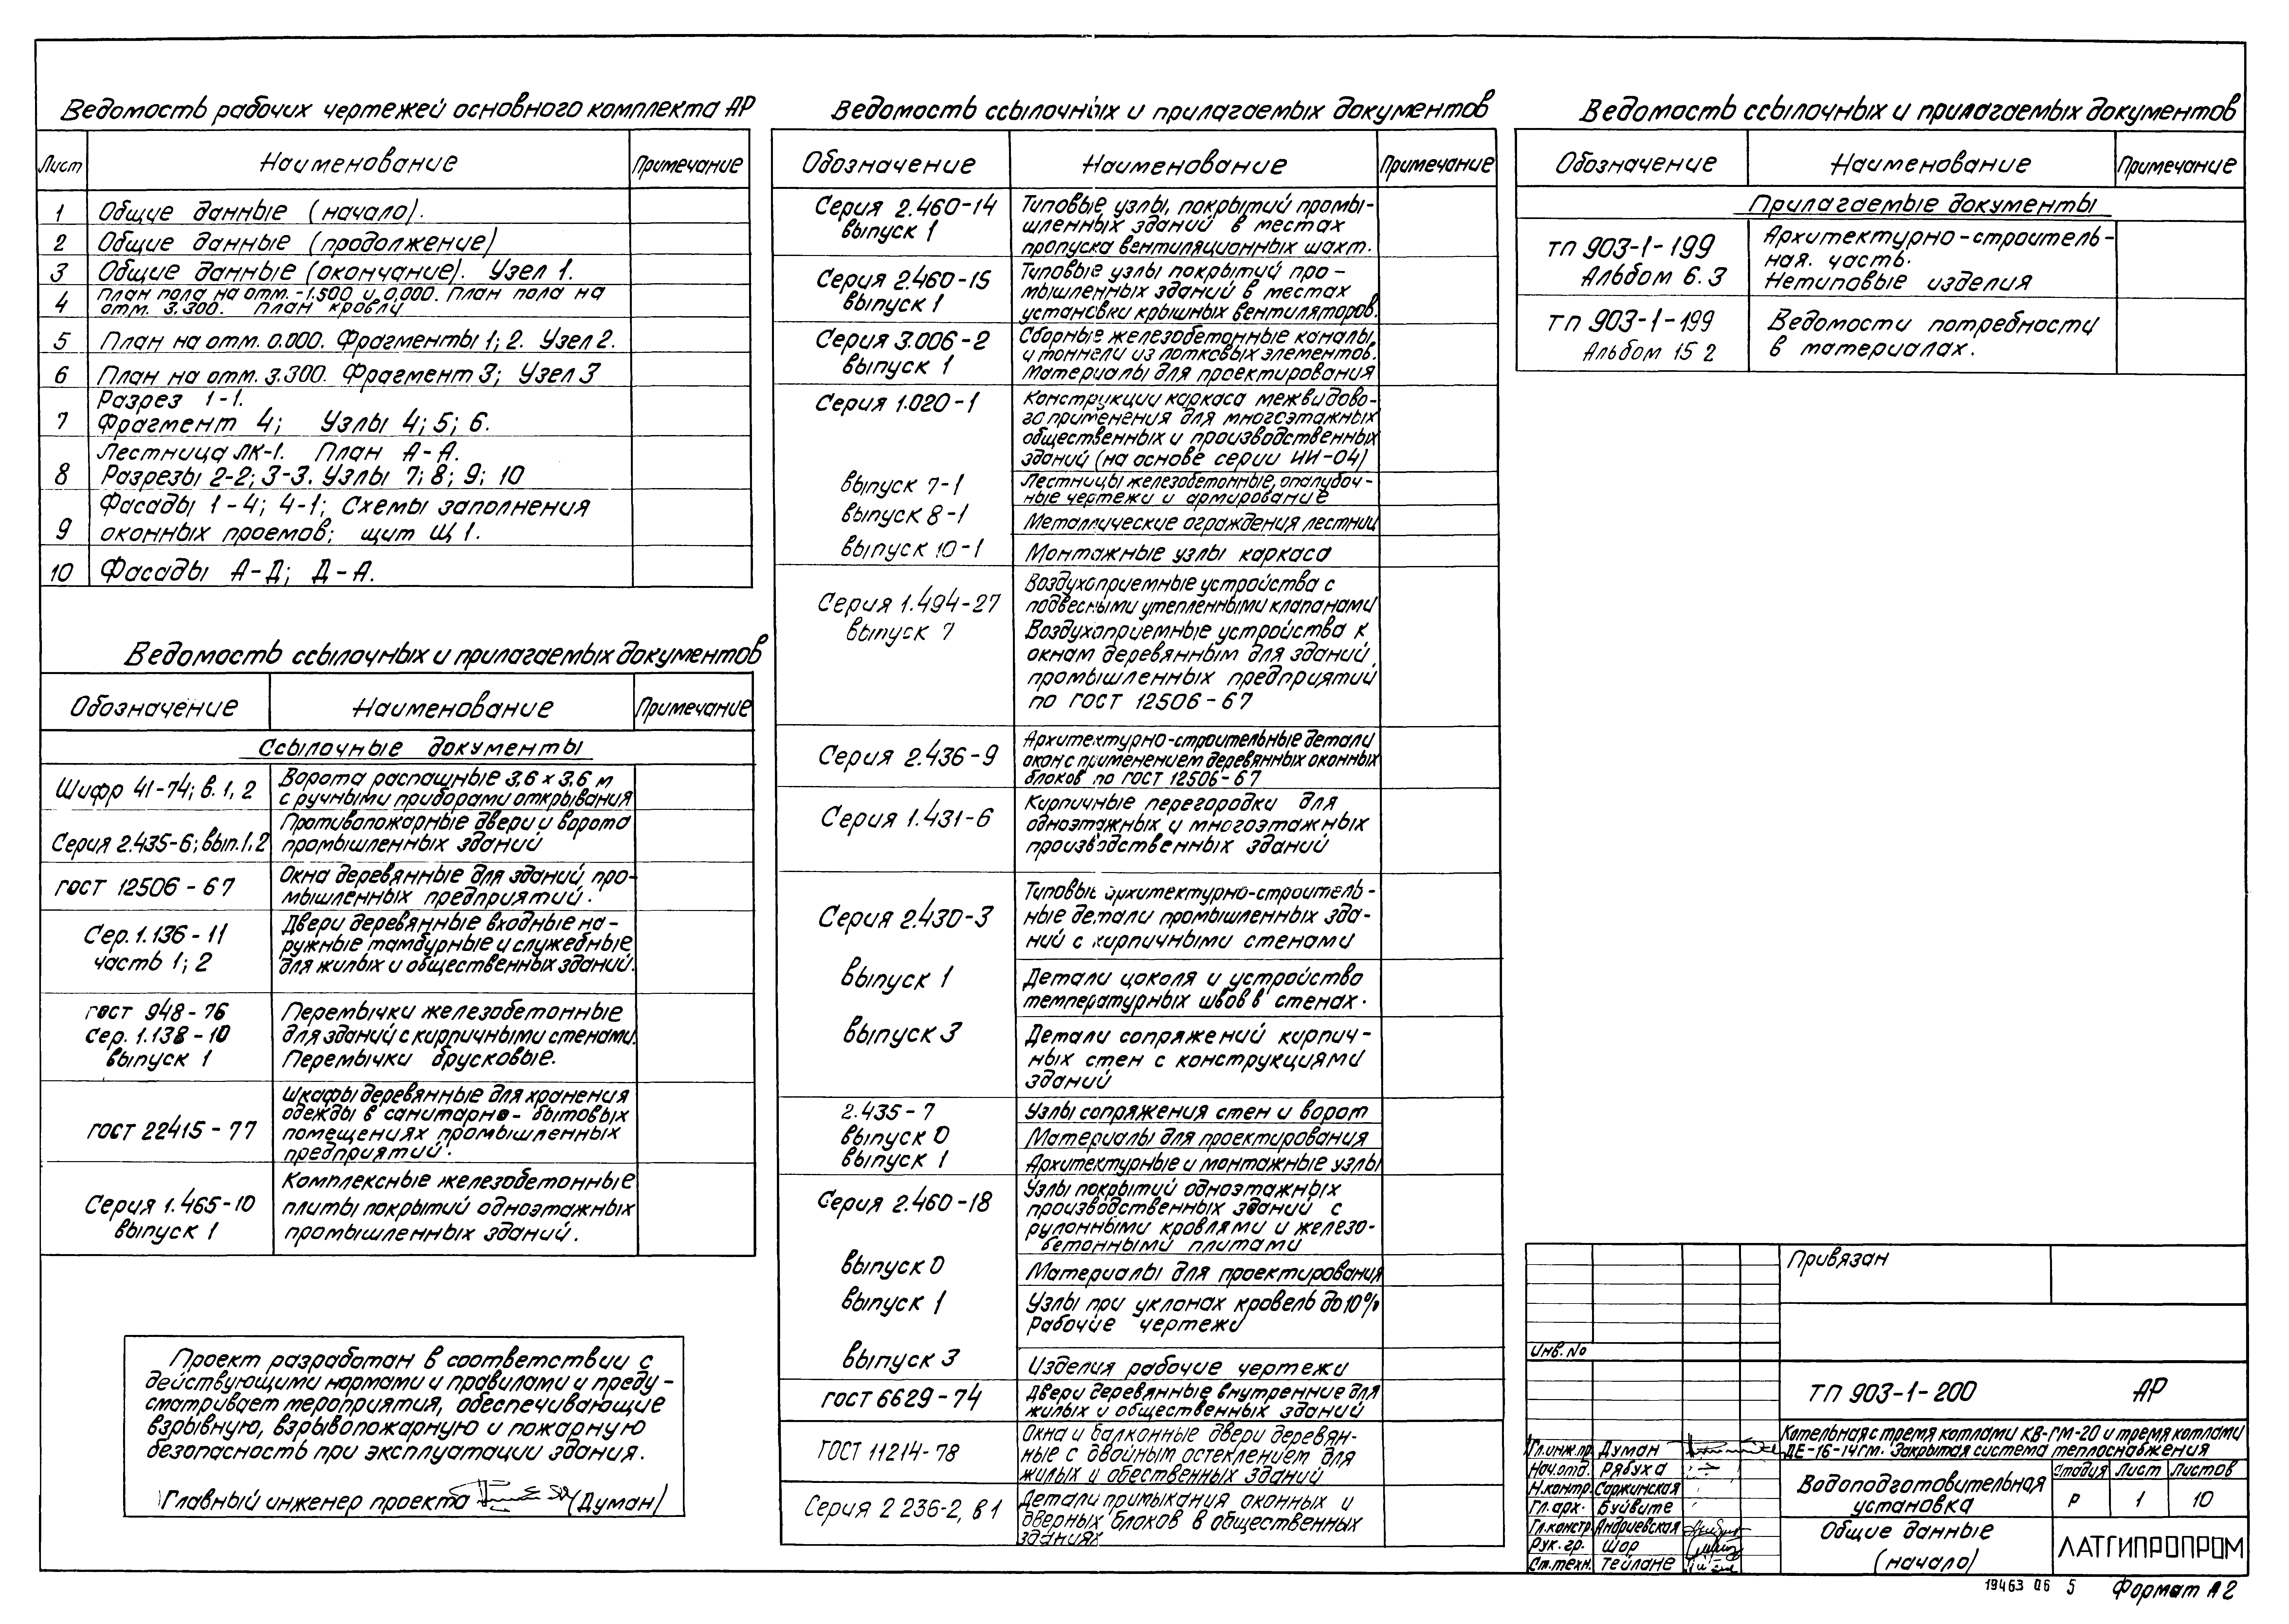 Ведомость рабочих чертежей основного комплекта АР
Лист Наименование Примечание
1 Общие данные (начало).
2 Общие данные (продолжение)
3 Общие данные (окончание). Узел 1.
4 План пола на отм. -1.500 и 0.000. План пола на
отм. 3.300. План кровли
5 План на отм. 0.000. Фрагменты 1; 2. Узел 2.
6 План на отм. 3.300. Фрагмент 3; Узел 3
Разрез 1-1.
7 Фрагмент 4; Узлы 4; 5; 6.
Лестница ЛК-1. План А-А.
8 Разрезы 2-2; 3-3. Узлы 7; 8; 9; 10
Фасады 1-4; 4-1; Схемы заполнения
9 оконных проемов; щит Щ1.
10 Фасады А-Д; Д-А.
Ведомость ссылочных и прилагаемых документов
Обозначение Наименование Примечание
Ссылочные документы
Шифр 41-74; в. 1, 2 Ворота распашные 3,6 х 3,6 м
с ручными приборами открывания
Серия 2.435-6; вып. 1, 2 Противопожарные двери и ворота
промышленных зданий
ГОСТ 12506-67 Окна деревянные для зданий про-
мышленных предприятий.
Сер. 1.136-11 Двери деревянные входные на-
часть 1; 2 ружные тамбурные и служебные
для жилых и общественных зданий.
ГОСТ 948-76 Перемычки железобетонные
Сер. 1.138-10 для зданий с кирпичными стенами.
выпуск 1 Перемычки брусковые.
ГОСТ 22415-77 Шкафы деревянные для хранения
одежды в санитарно-бытовых
помещениях промышленных
предприятий.
Серия 1.465-10 Комплексные железобетонные
выпуск 1 плиты покрытий одноэтажных
промышленных зданий.
Проект разработан в соответствии с
действующими нормами и правилами и преду-
сматривает мероприятия, обеспечивающие
взрывную, взрывопожарную и пожарную
безопасность при эксплуатации здания.
Главный инженер проекта (Думан)
Ведомость ссылочных и прилагаемых документов
Обозначение Наименование Примечание
Серия 2.460-14 Типовые узлы, покрытий промы-
выпуск 1 шленных зданий в местах
пропуска вентиляционных шахт.
Серия 2.460-15 Типовые узлы покрытий про-
выпуск 1 мышленных зданий в местах
установки крышных вентиляторов.
Серия 3.006-2 Сборные железобетонные каналы
выпуск 1 и тоннели из лотковых элементов.
Материалы для проектирования
Серия 1.020-1 Конструкции каркаса межвидово-
го применения для многоэтажных
общественных и производственных
зданий (на основе серии ИИ-04)
выпуск 7-1 Лестницы железобетонные, опалубоч-
ные чертежи и армирование
выпуск 8-1 Металлические ограждения лестниц
выпуск 10-1 Монтажные узлы каркаса
Серия 1.494-27 Воздухоприемные устройства с
выпуск 7 подвесными утепленными клапанами
Воздухоприемные устройства к
окнам деревянным для зданий
промышленных предприятий
по ГОСТ 12506-67
Серия 2.436-9 Архитектурно-строительные детали
окон с применением деревянных оконных
блоков по ГОСТ 12506-67
Серия 1.431-6 Кирпичные перегородки для
одноэтажных и многоэтажных
производственных зданий
Серия 2.430-3 Типовые архитектурно-строитель-
ные детали промышленных зда-
ний с кирпичными стенами
выпуск 1 Детали цоколя и устройство
температурных швов в стенах.
выпуск 3 Детали сопряжений кирпич-
ных стен с конструкциями
зданий
2.435-7 Узлы сопряжения стен и ворот
выпуск 0 Материалы для проектирования
выпуск 1 Архитектурные и монтажные узлы
Серия 2.460-18 Узлы покрытий одноэтажных
производственных зданий с
рулонными кровлями и железо-
бетонными плитами
выпуск 0 Материалы для проектирования
выпуск 1 Узлы при уклонах кровель до 10%
Рабочие чертежи
выпуск 3 Изделия рабочие чертежи
ГОСТ 6629-74 Двери деревянные внутренние для
жилых и общественных зданий
ГОСТ 11214-78 Окна и балконные двери деревян-
ные с двойным остеклением для
жилых и обественных зданий
Серия 2 236-2, в 1 Детали примыкания оконных и
дверных блоков в общественных
зданиях
Ведомость ссылочных и прилагаемых документов
Обозначение Наименование Примечание
Прилагаемые документы
ТП 903-1-199 Архитектурно-строитель-
Альбом 6.3 ная. часть.
Нетиповые изделия
ТП 903-1-199 Ведомости потребности
Альбом 15 2 в материалах.
Привязан
Инв. №
ТП 903-1-200 АР
Котельная с тремя котлами КВ-ГМ-20 и тремя котлами
ДЕ-16-14гм. Закрытая система теплоснабжения
Гл.инж.пр. Думан
Нач.отд. Рябуха
Н.контр. Саржинская
Гл.арх. Буйвите
Гл.констр. Андриевская
Рук. гр. Шор
Ст.техн. Тейлане
Водоподготовительная
установка
Стадия Лист Листов
Р 1 10
Общие данные
(начало)
ЛАТГИПРОПРОМ
19463 06 5 Формат А2